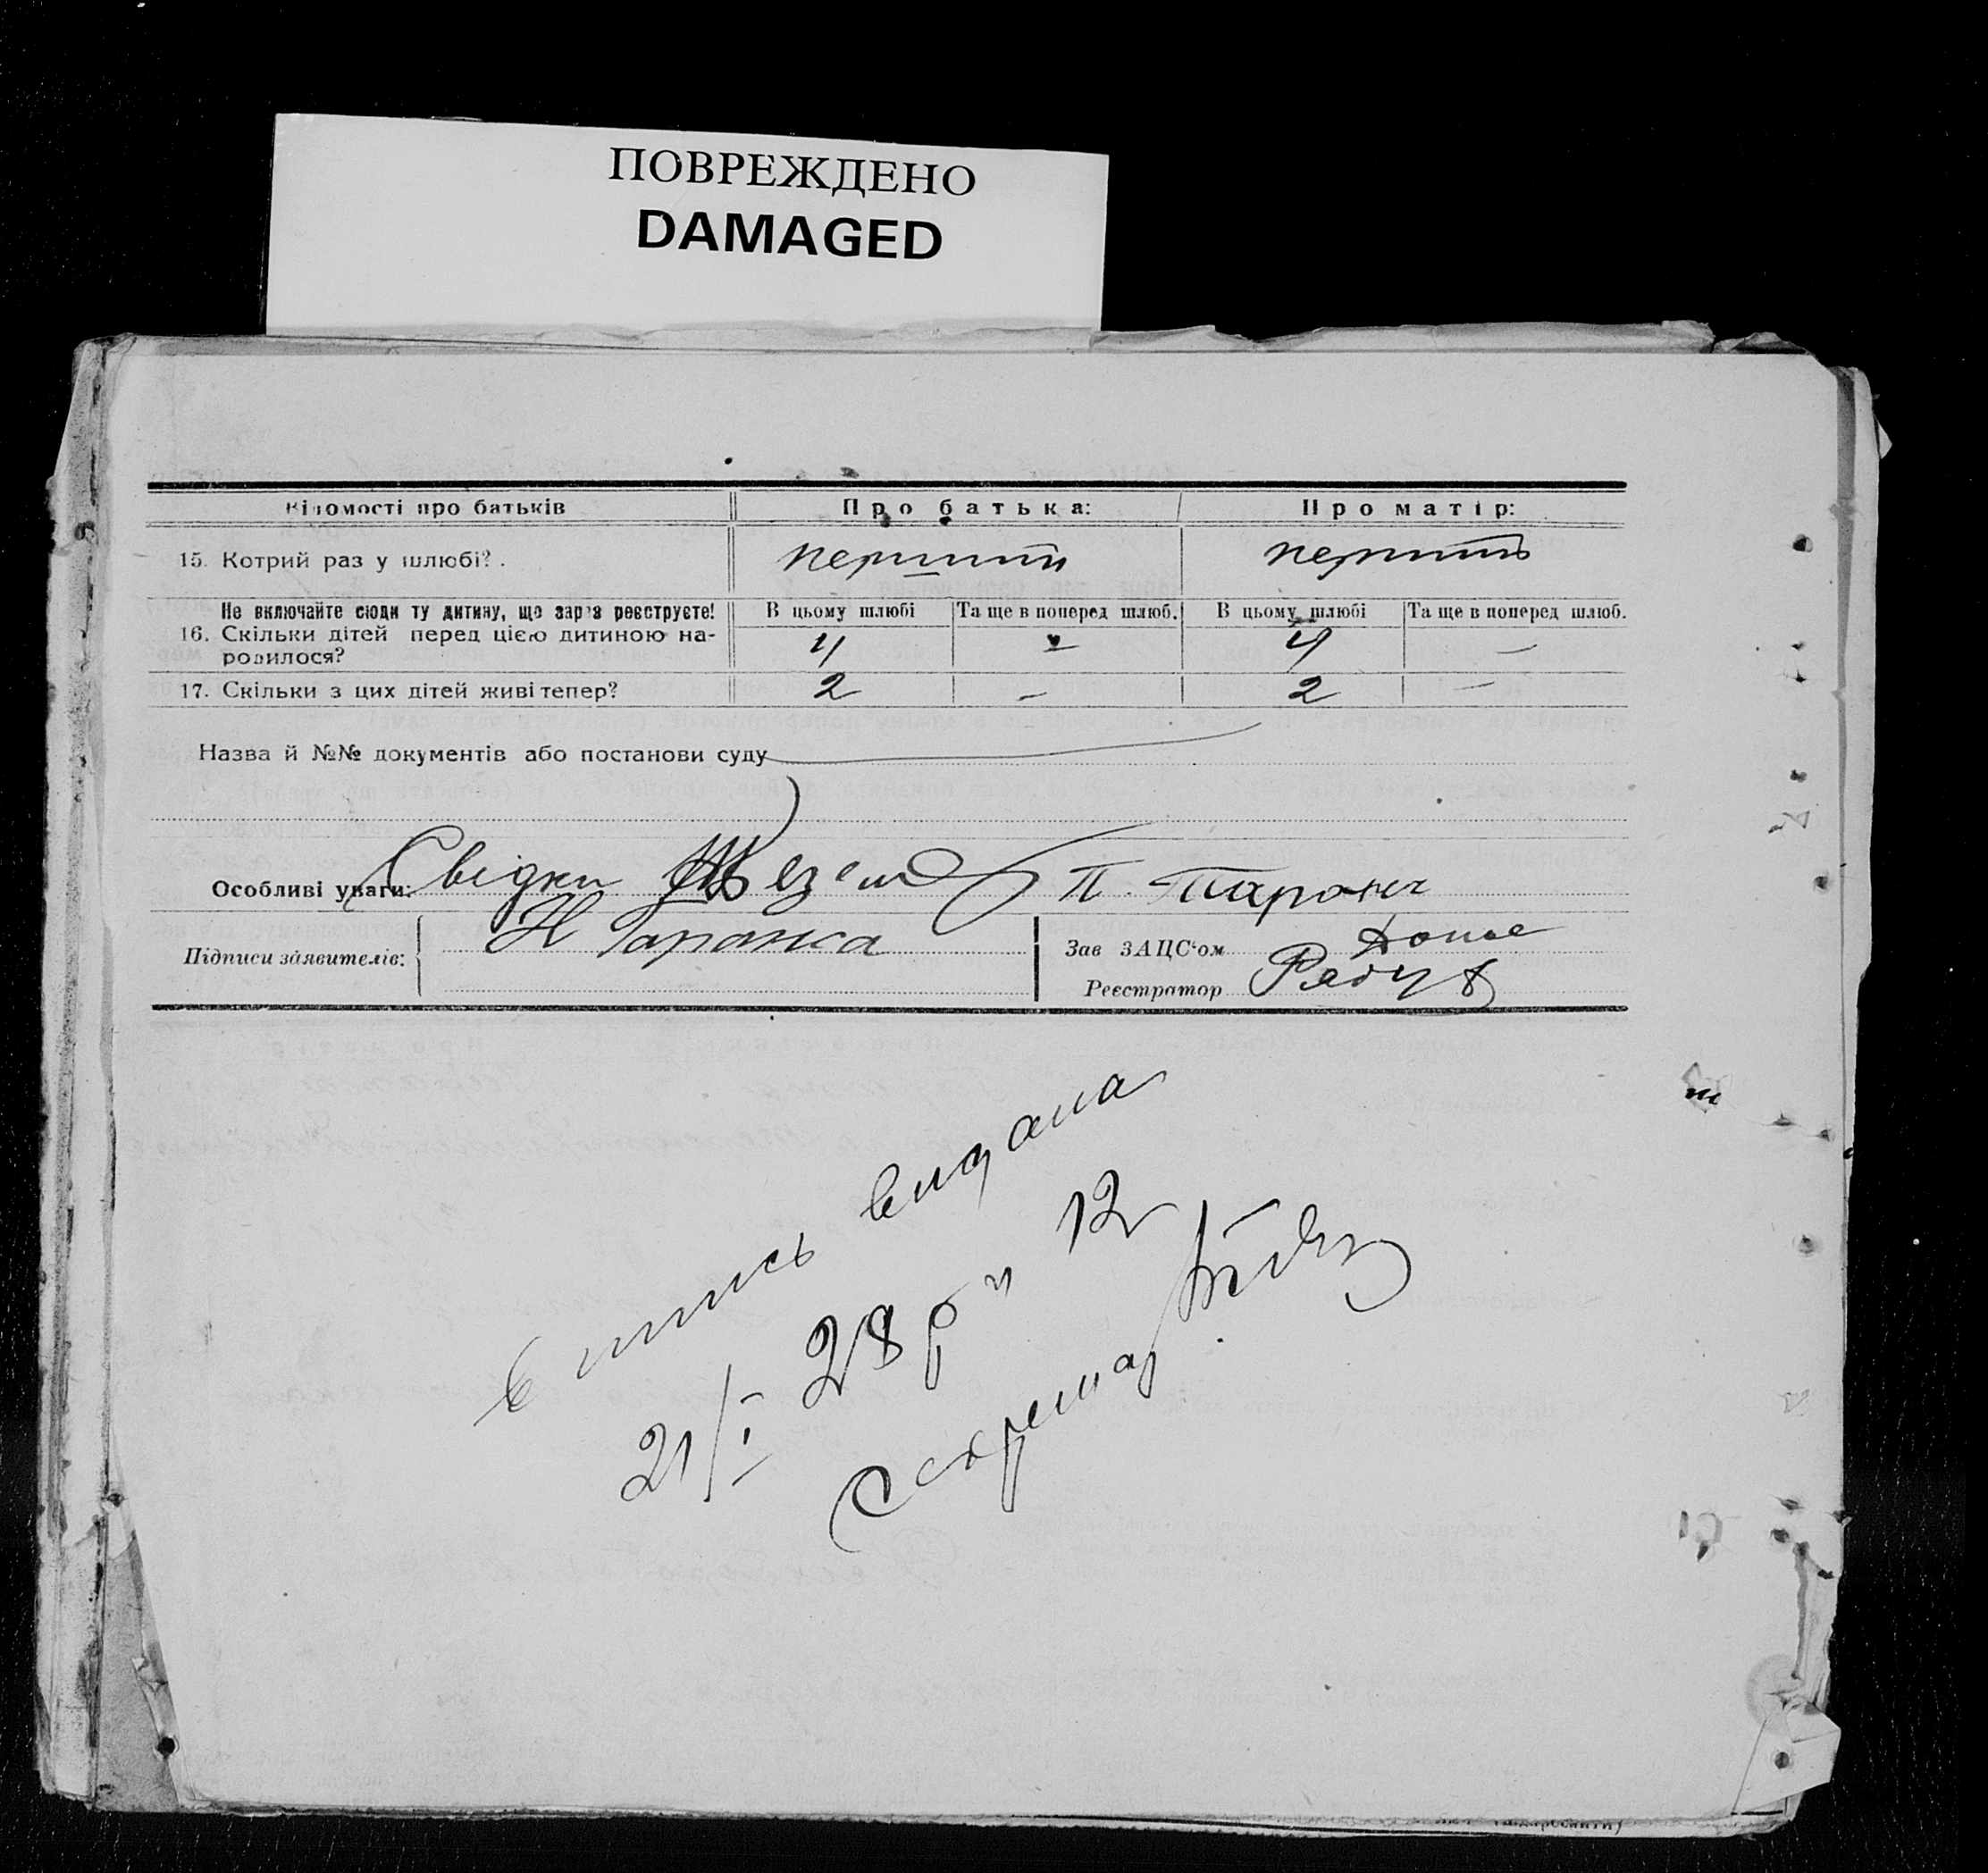 ПОВРЕЖДЕНО
DAMAGED
Відомості про батьків Про батька: Про матір:
15. Котрий раз у шлюбі? перший перший
Не включайте сюди ту дитину, що зараз реєструєте! В цьому шлюбі Та ще в поперед шлюб. В цьому шлюбі Та ще в поперед шлюб.
16. Скільки дітей перед цією дитиною на-
родилося? 4 – 4 –
17. Скільки з цих дітей живі тепер? 2 – 2 –
Назва й №№ документів або постанови суду
Особливі уваги: Свідки П.
Підписи заявителів: Н Таранса Зав ЗАЦС'ом
Реєстратор
видана
21/I 28 р " 12
Секретар